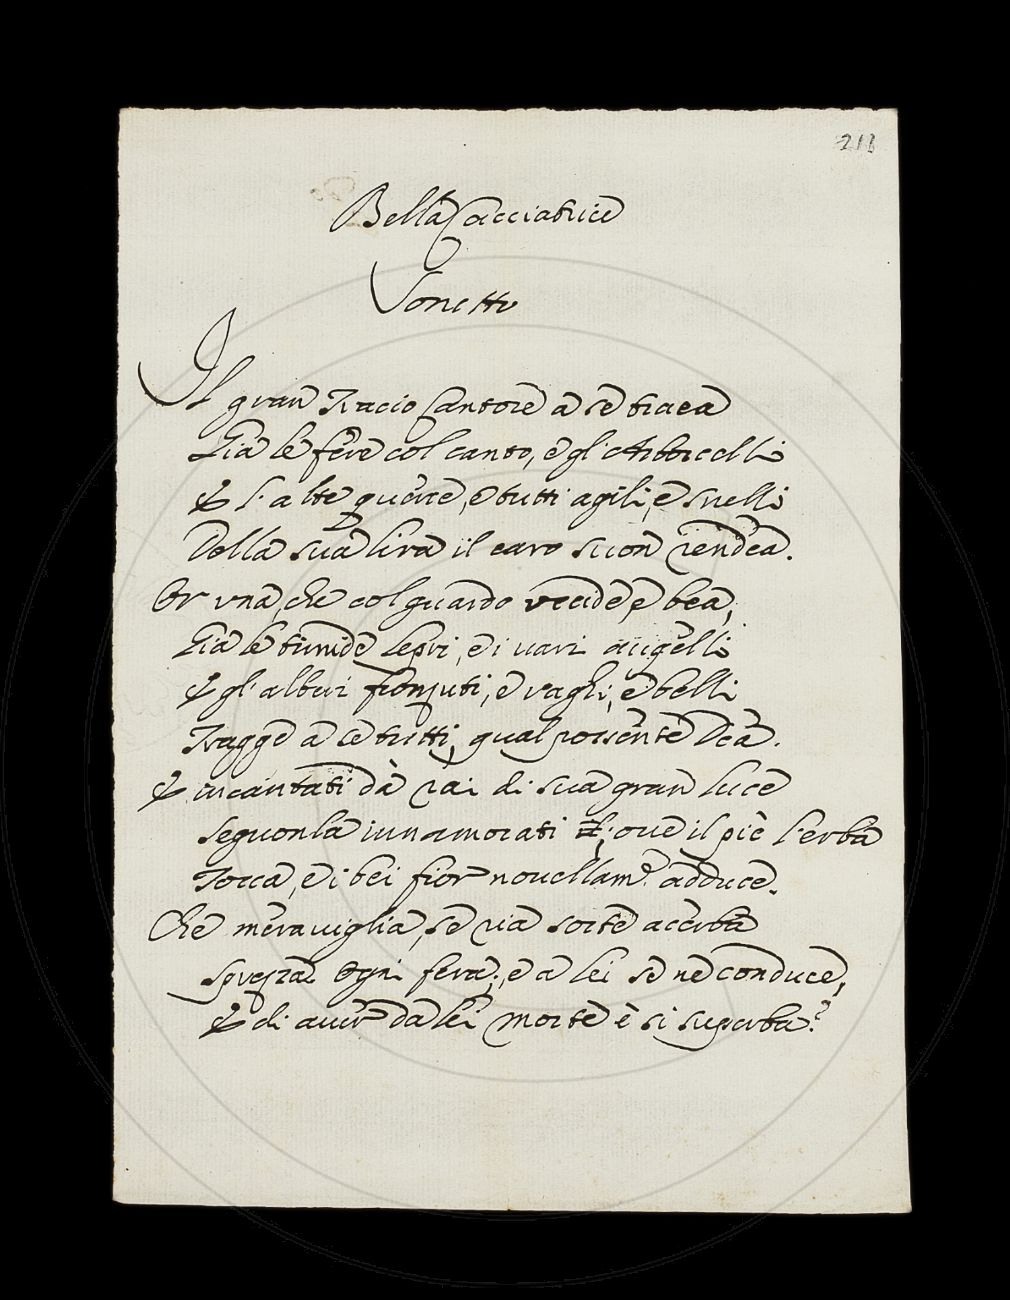 213
Bella Cacciatrice
Sonetto
Il gran Tracio Cantore a se traea
Già le fere col canto, e gl'Arbicelli
E l'alte querce, e tutti agili, e snelli
Della sua lira il caro suon rendea.
Or una, che col guardo uccide, e bea,
Già le timide lepri, e i vari augelli
E gl'alberi fronzuti, e vaghi, e belli
Tragge a se tutti, qual possente Dea.
E incantati dà rai di sua gran luce
Seguonla innamorati; ove il piè l'erba
Tocca, e i bei fior novellam.e adduce.
Che meraviglia, se ria sorte acerba
Sprezza ogni fera; e a lei se ne conduce,
E di aver da lei morte è si superba?